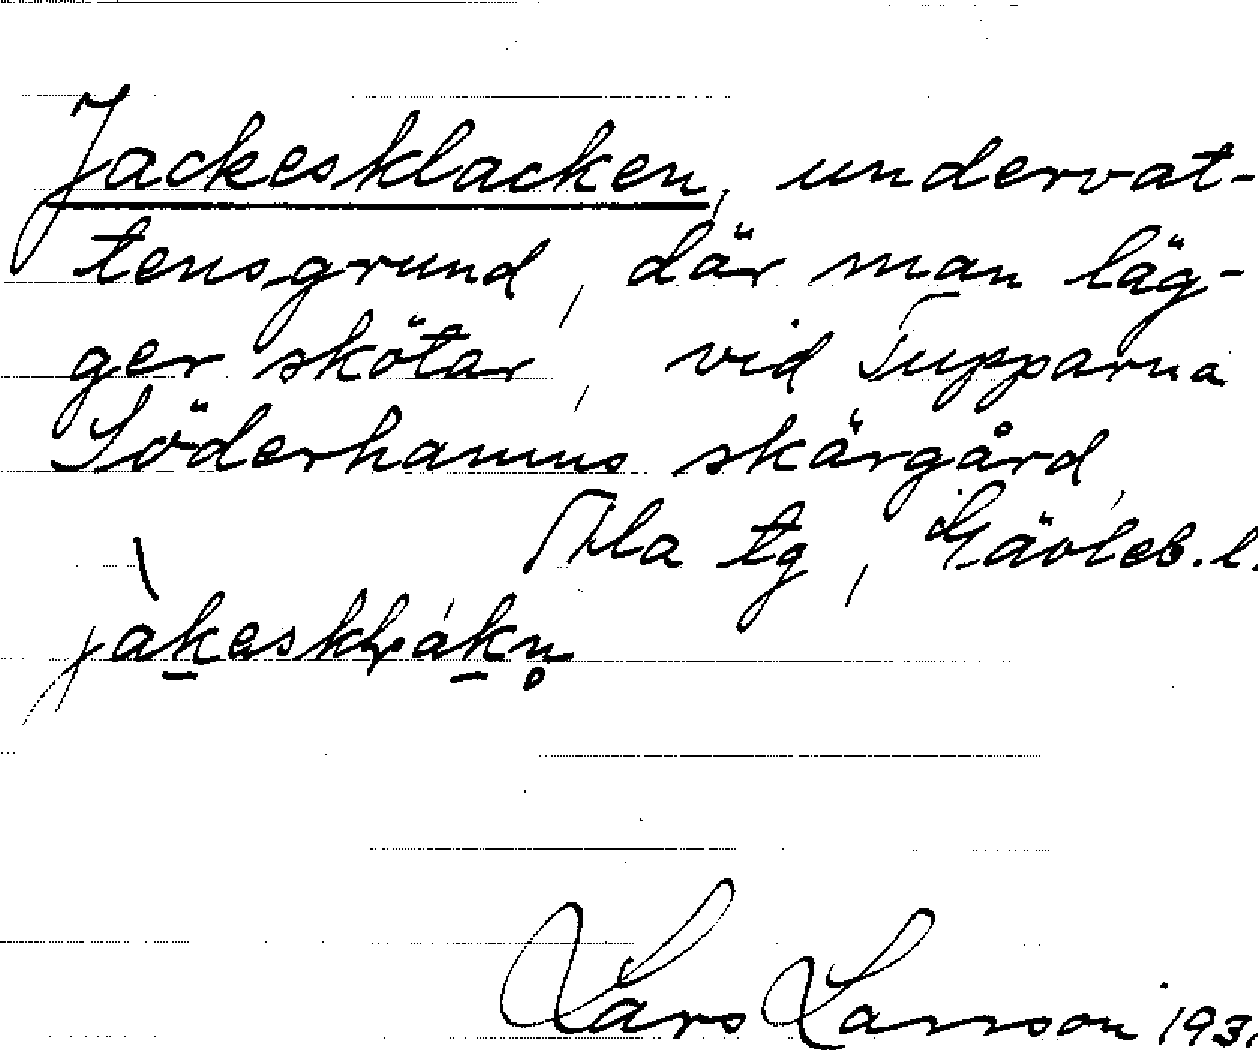 Jackesklacken, undervat-
tensgrund, där man läg-
ger skötar, vid Tupparna
Söderhamns skärgård,
Ala tg, Gävleb. l.
Lars Larsson 193